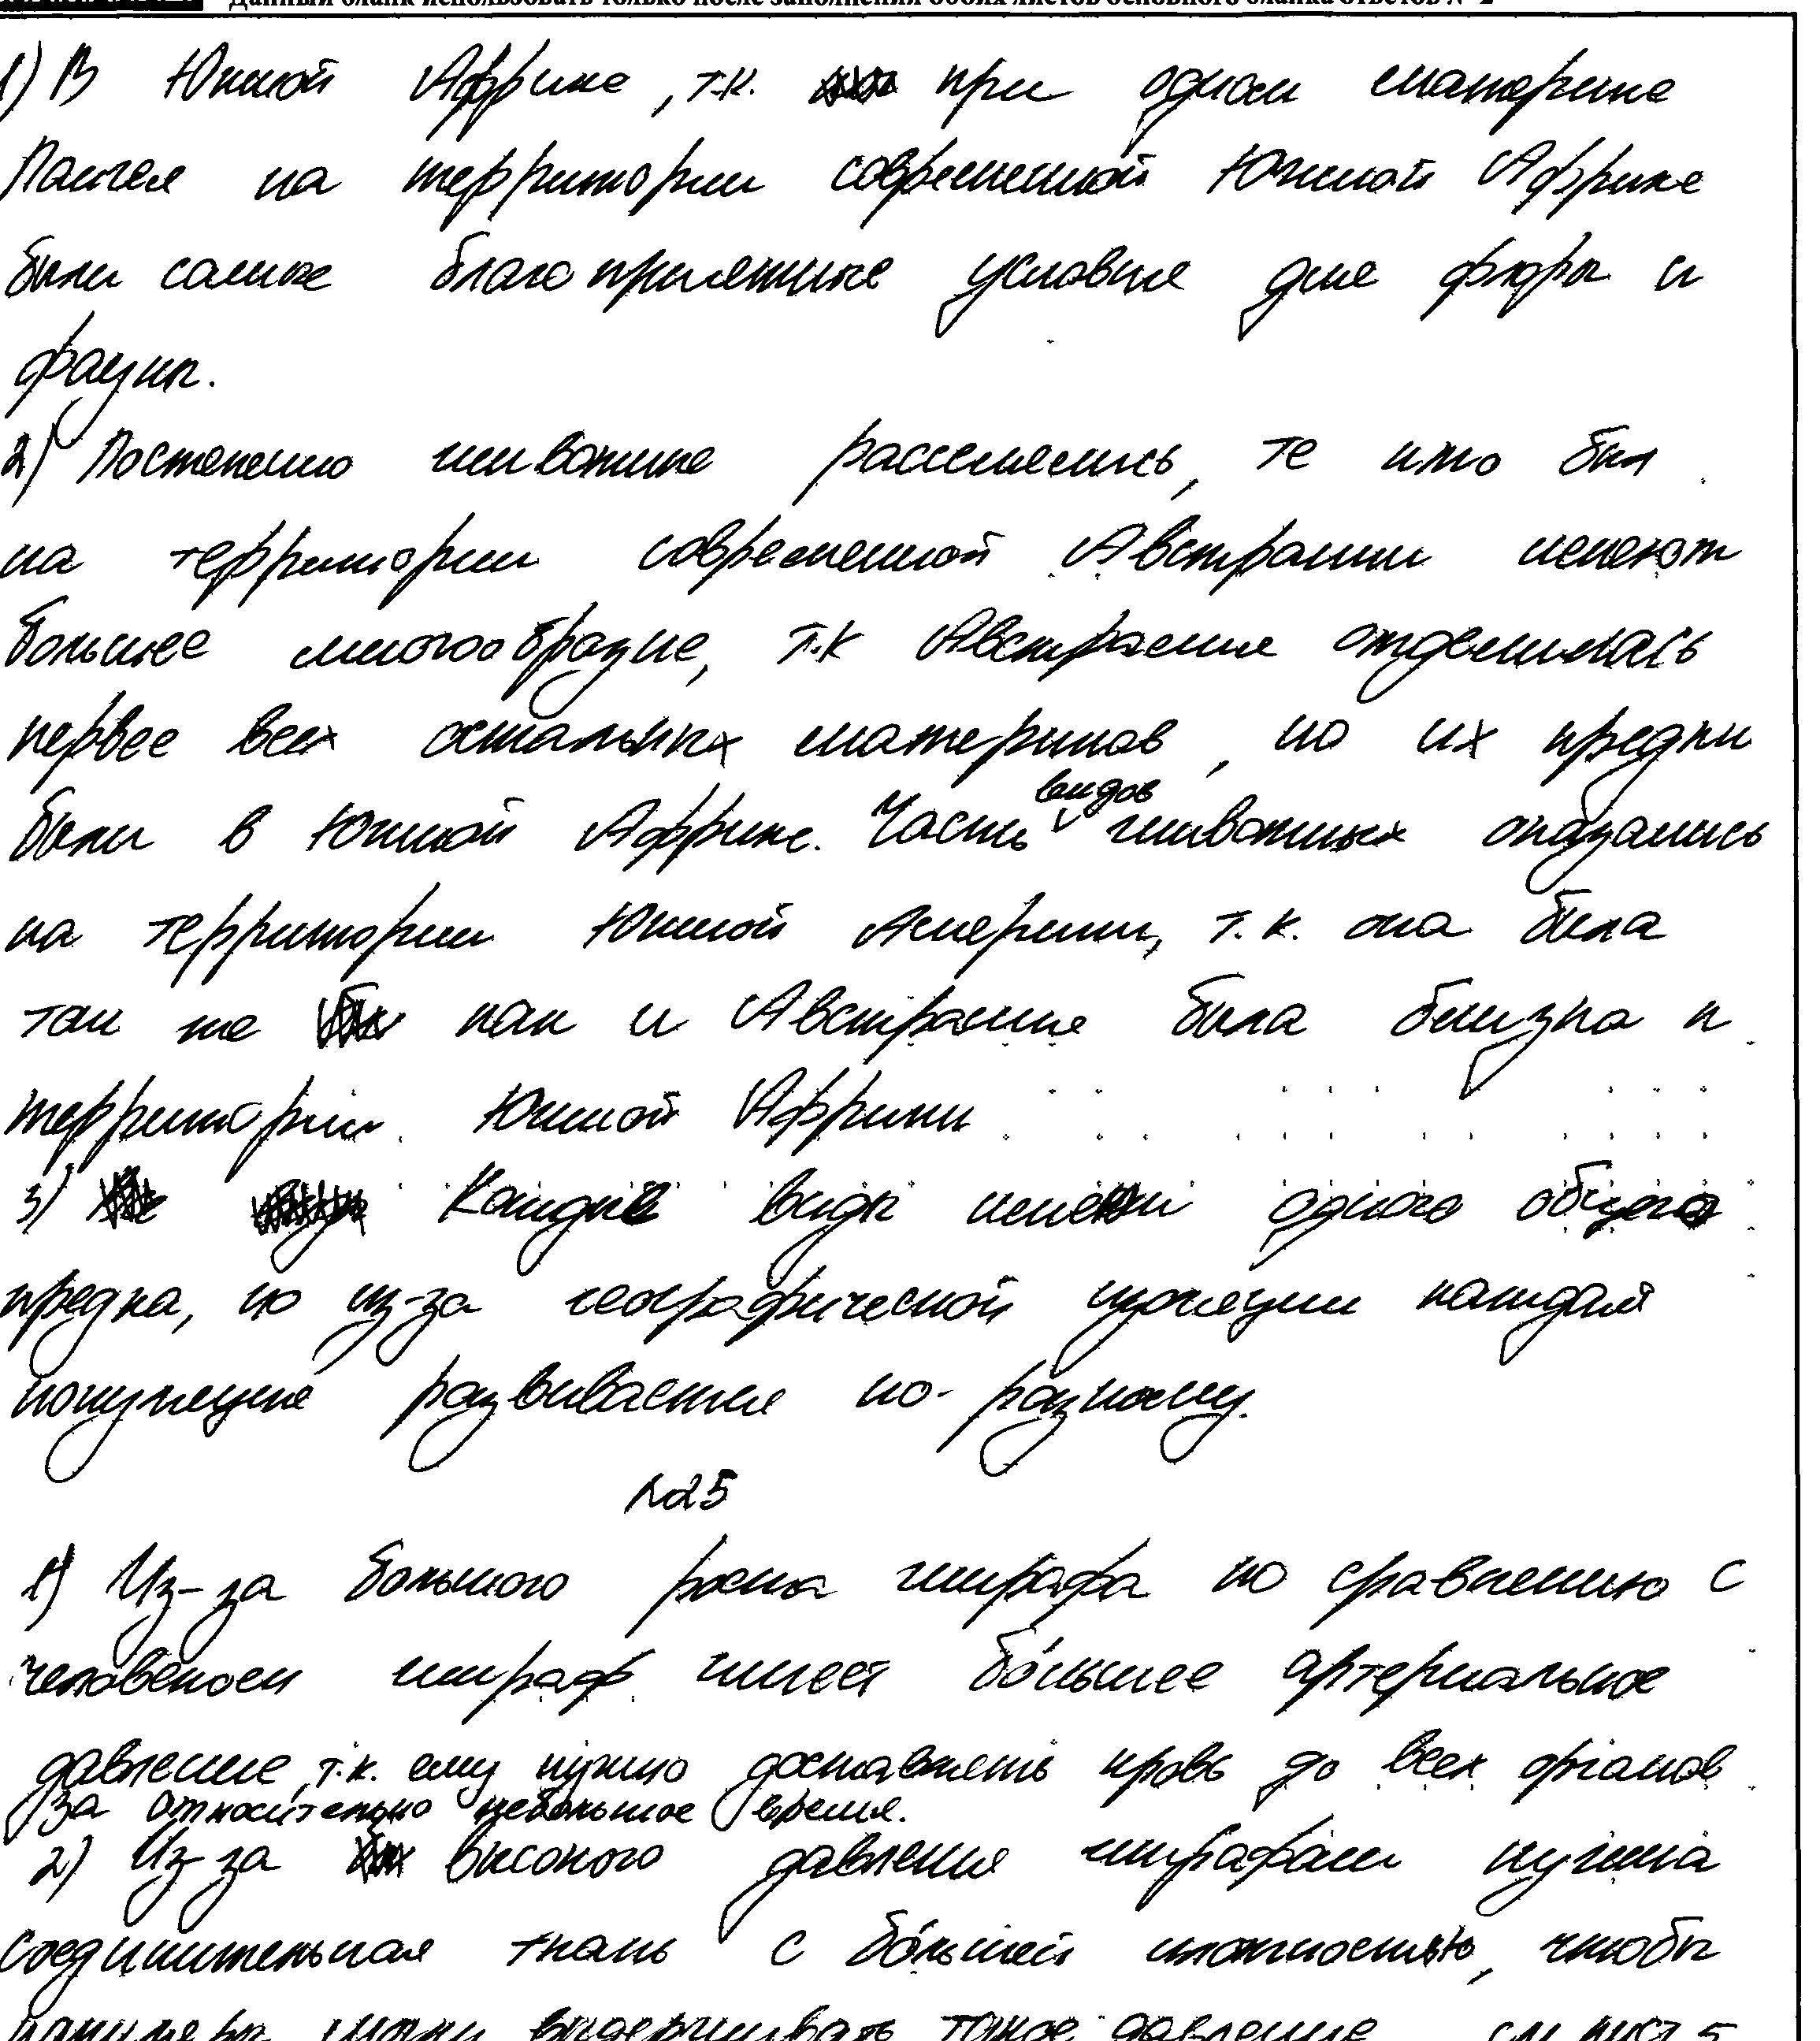 Данный бланк использовать только после заполнения обоих листов основного бланка ответов № 2
1) В Южной Африке, т.к. при одном материке
Пангея на территории современной Южной Африке
были самые благоприятные условия для флоры и
фауны.
2) Постепенно животные расселялись, те кто был
на территории современной Австралии имеют
большее многообразие, т.к Австралия отделилась
первее всех остальных материков, но их предки
были в Южной Африке. Часть видов животных оказались
на территории Южной Америки, т.к. она была
так же как и Австралия была близка к
территории Южной Африки
3) Каждые виды имели одного общего
предка, но из-за географической изоляции каждая
популяция развивается по-разному.
№25
1) Из-за большого роста жирафа по сравнению с
человеком жираф имеет бо́льшее артериальное
давление, т.к. ему нужно доставлять кровь до всех органов
за относительно небольшое время.
2) Из-за высокого давления жирафам нужна
соединительная ткань с бо́льшей плотностью, чтобы
капилляры могли выдерживать такое давление см лист 5